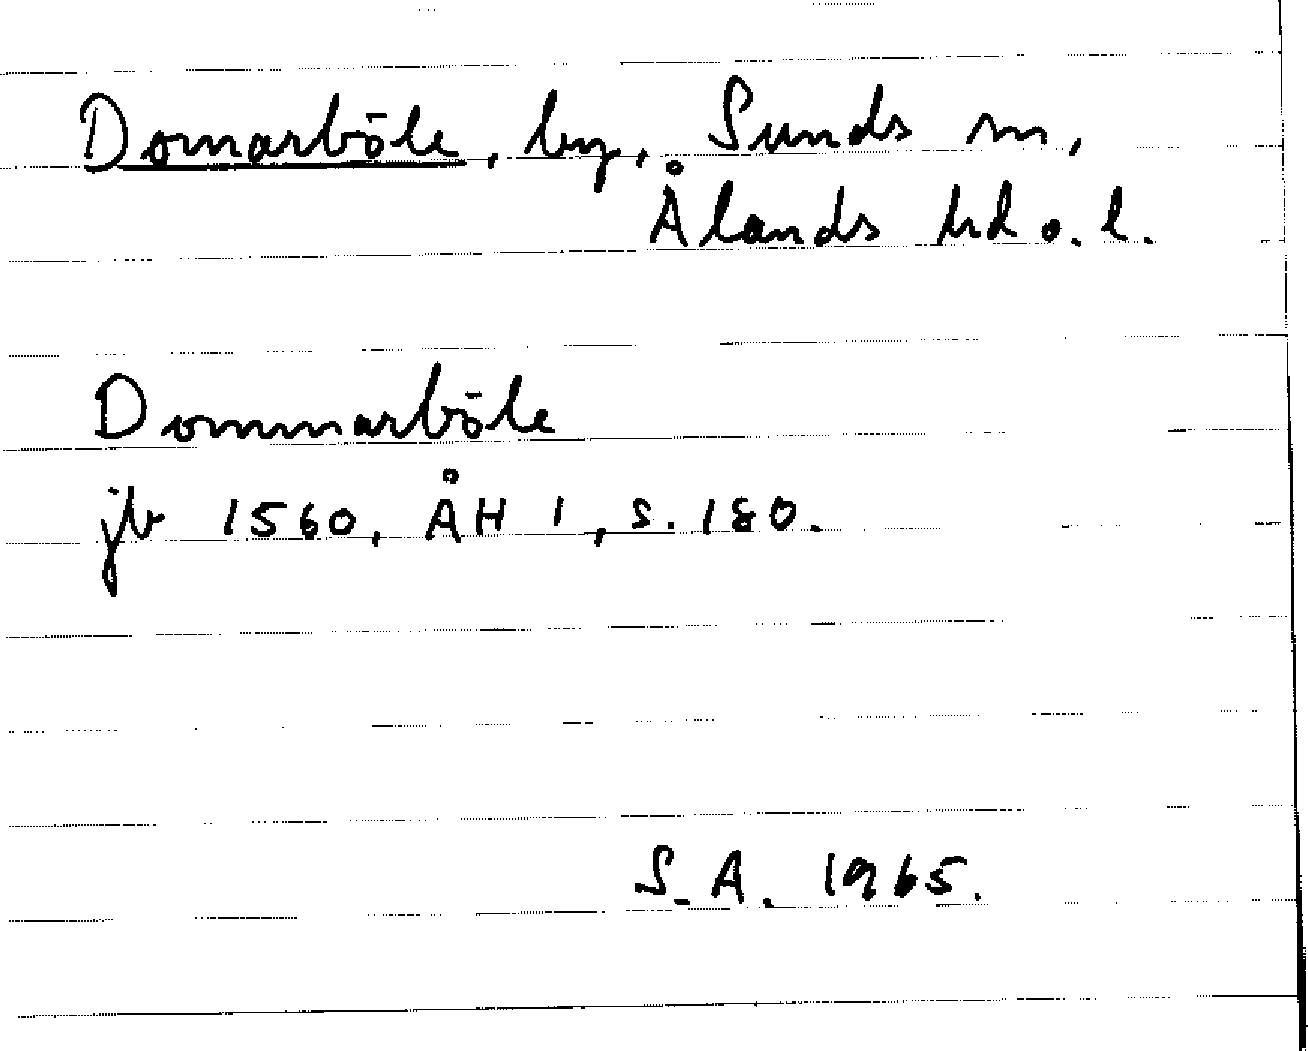 Domarböle, by, Sunds sn,
Ålands hd o. l.
Dommarböle
jb 1560, ÅH 1, s. 180.
S.A. 1965.